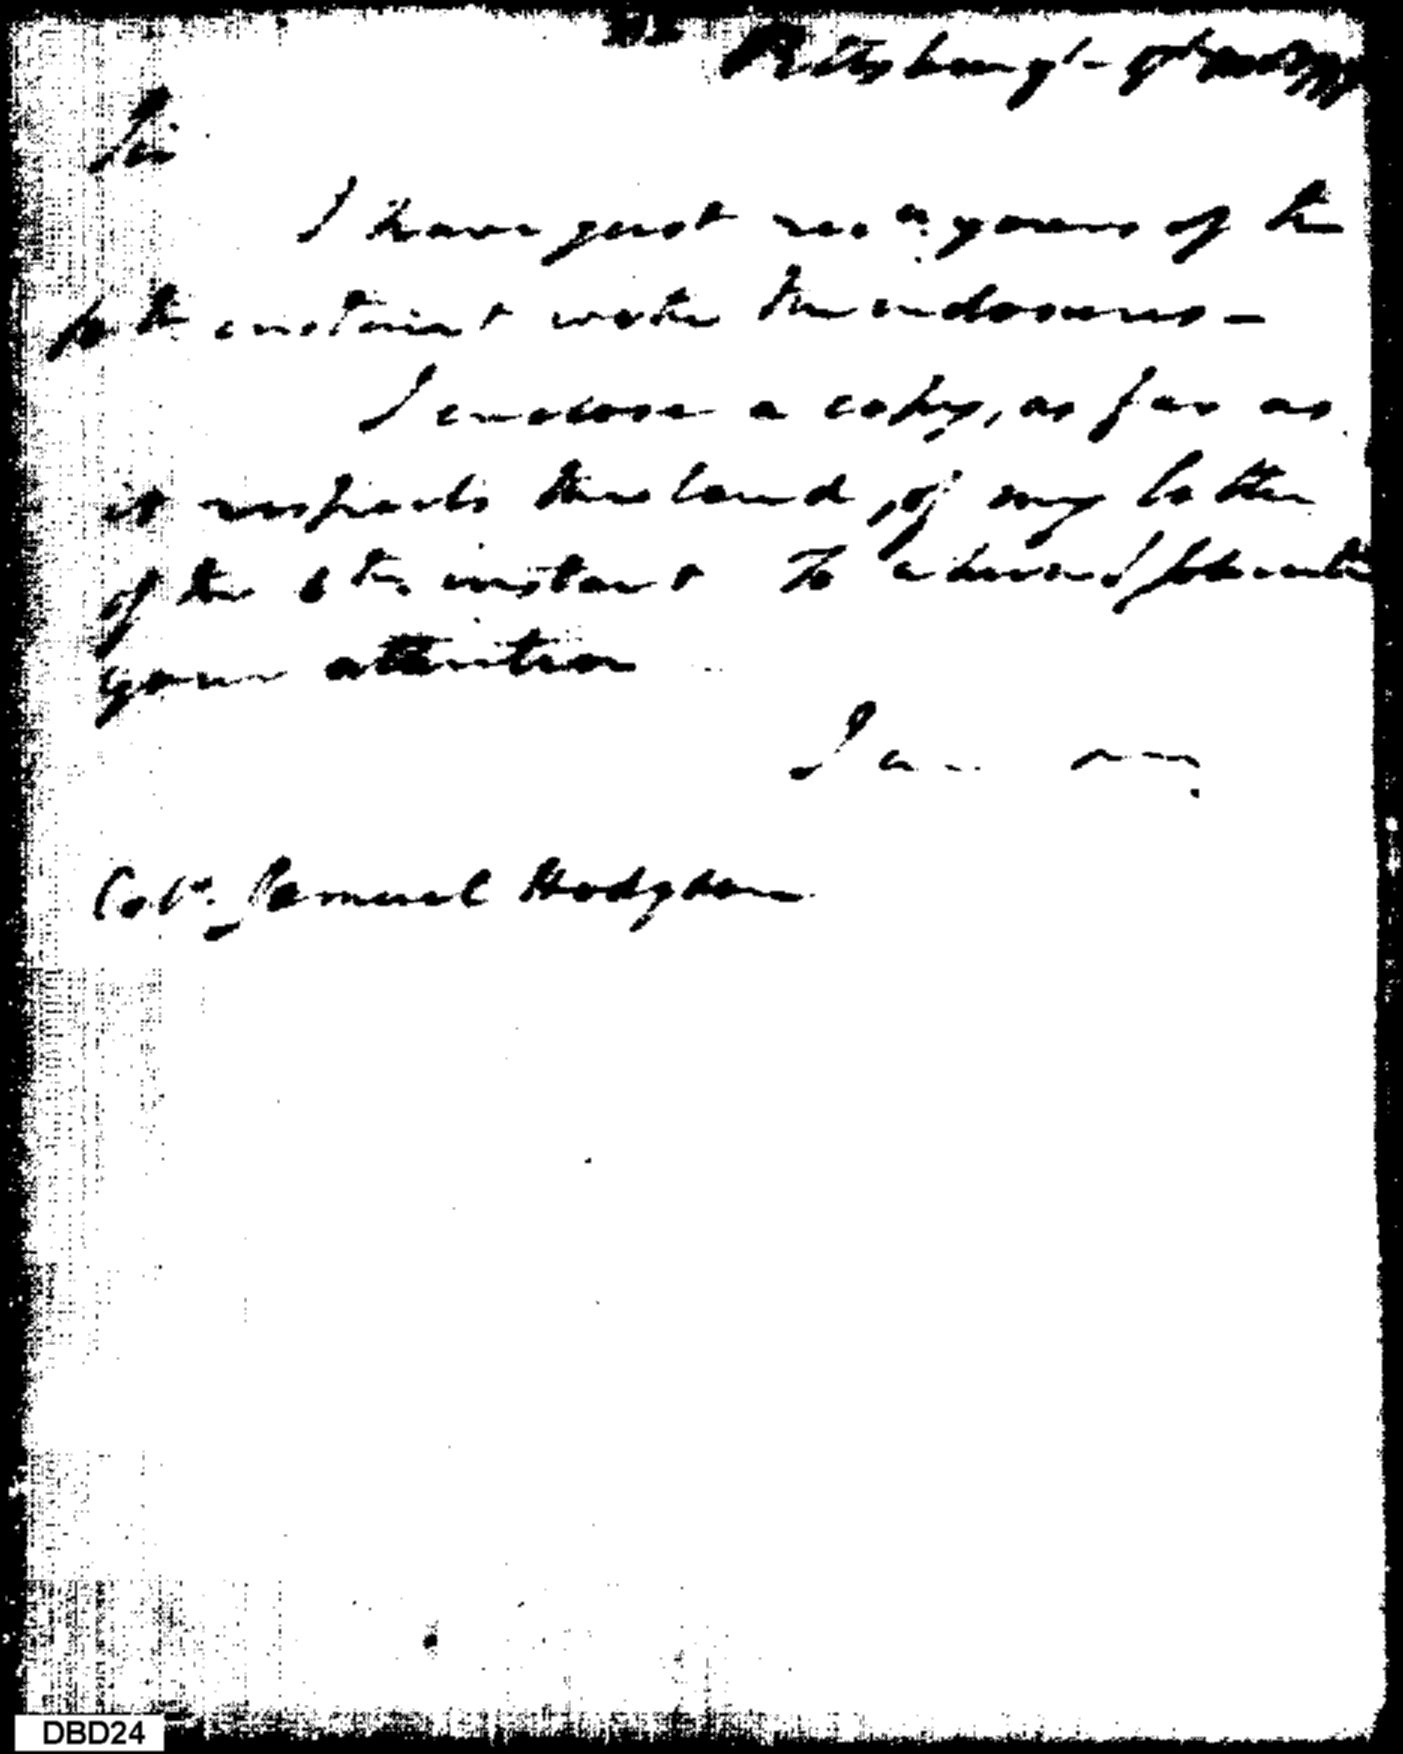 Pittsburgh - 9th
Sir
I have just recd. yours of the
instant with the inclosures -
I enclose a copy, as far as
it respects the land, of my letter
of the 6th instant To
your attention
I am
Coln. Samuel Hodgdon
DBD24